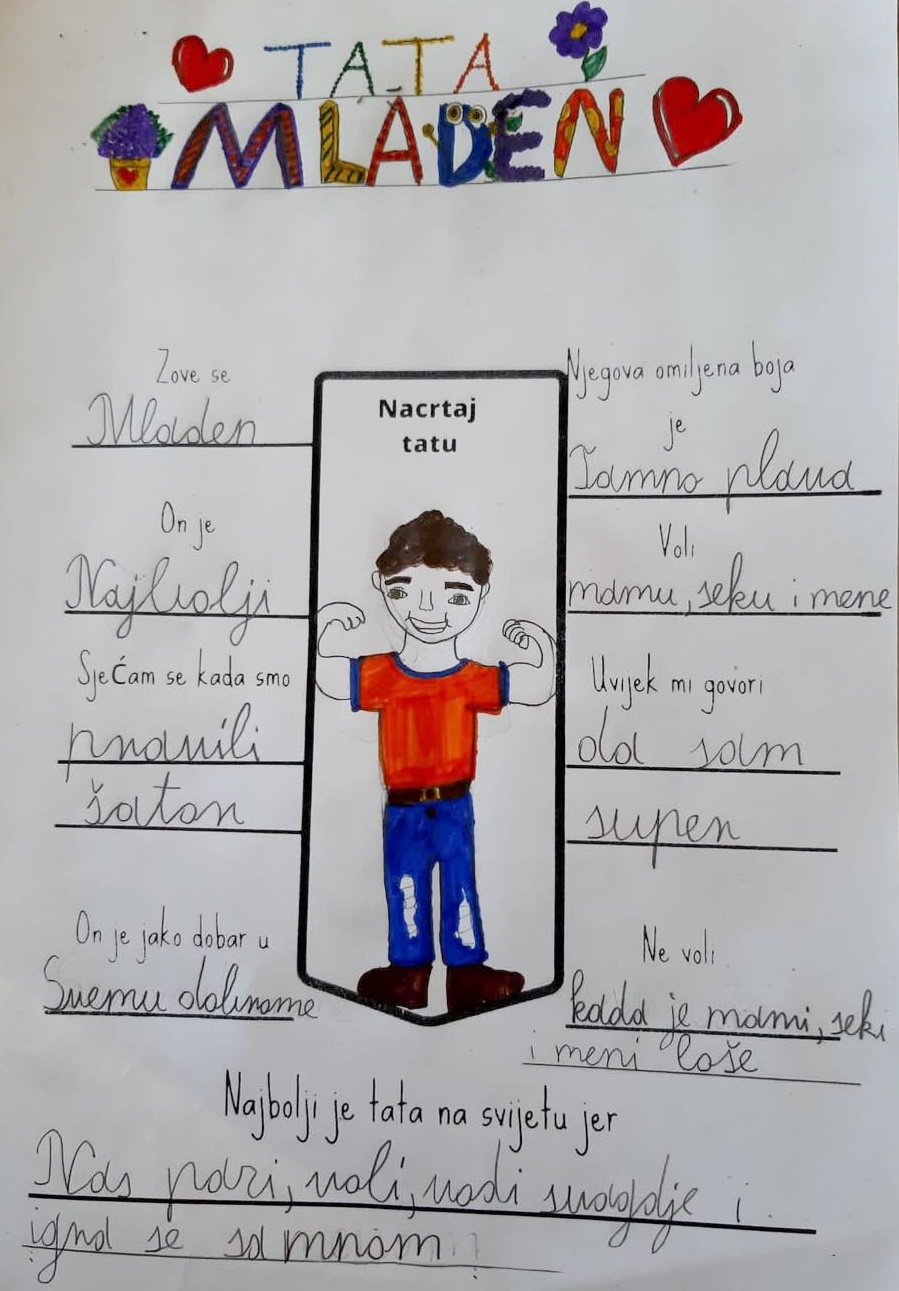 TATA
MLADEN
Zove se
Mladen
On je
Najbolji
Sjećam se kada smo
pravili
šator
On je jako dobar u
Svemu dobrome
Nacrtaj
tatu
Njegova omiljena boja
je
Tamno plava
Voli
mamu, seku i mene
Uvijek mi govori
da sam
super
Ne voli
kada je mami, seki
i meni loše
Najbolji je tata na svijetu jer
Nas pazi, voli, vodi svagdje i
igra se sa mnom